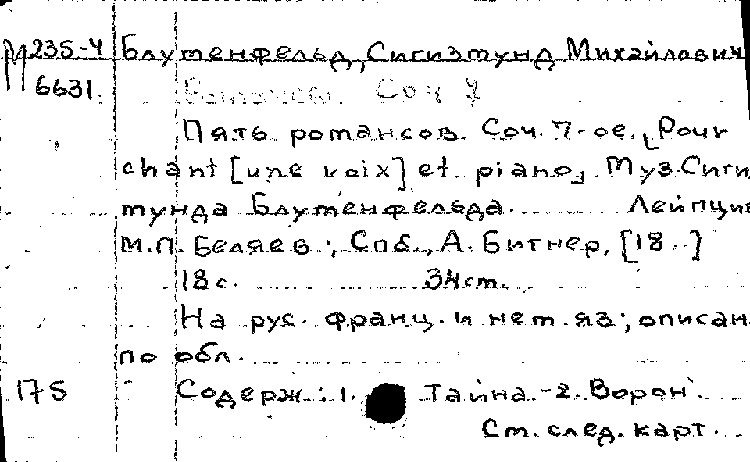 М 235-4 Блуменфельд, Сигизмунд Михайлович
6631.
Романсы. Соч 7
Пять романсов. Соч. 7-ое. "Pour
chant [une voix] et piano" Муз. Сиги
мунда Блуменфельда. Лейпциг
М.П. Беляев; Спб., А. Битнер, [18..]
18 с. 34 см.
На рус. франц. и нем. яз; описан
по обл.
175 Содерж.: 1. Тайна.-2. Ворон.
См. след. карт.